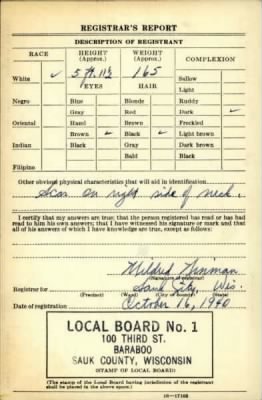 REGISTRAR'S REPORT
DESCRIPTION OF REGISTRANT
RACE HEIGHT (Approx.) WEIGHT (Approx.) COMPLEXION
White ✓ 5 ft. 11½ 165 Sallow
EYES HAIR Light
Negro Blue Blonde Ruddy
Gray Red Dark ✓
Oriental Hand Brown Freckled
Brown ✓ Black ✓ Light brown
Indian Black Gray Dark brown
Bald Black
Filipino
Other obvious physical characteristics that will aid in identification
Scar on right side of neck.
I certify that my answers are true; that the person registered has read or has had
read to him his own answers; that I have witnessed his signature or mark and that
all of his answers of which I have knowledge are true, except as follows:
Mildred
(Signature of registrar)
Registrar for Sauk City, Wis.
(Precinct) (Ward) (City or county) (State)
Date of registration October 16, 1940
LOCAL BOARD No. 1
100 THIRD ST.
BARABOO
SAUK COUNTY, WISCONSIN
(STAMP OF LOCAL BOARD)
(The stamp of the Local Board having jurisdiction of the registrant
shall be placed in the above space.)